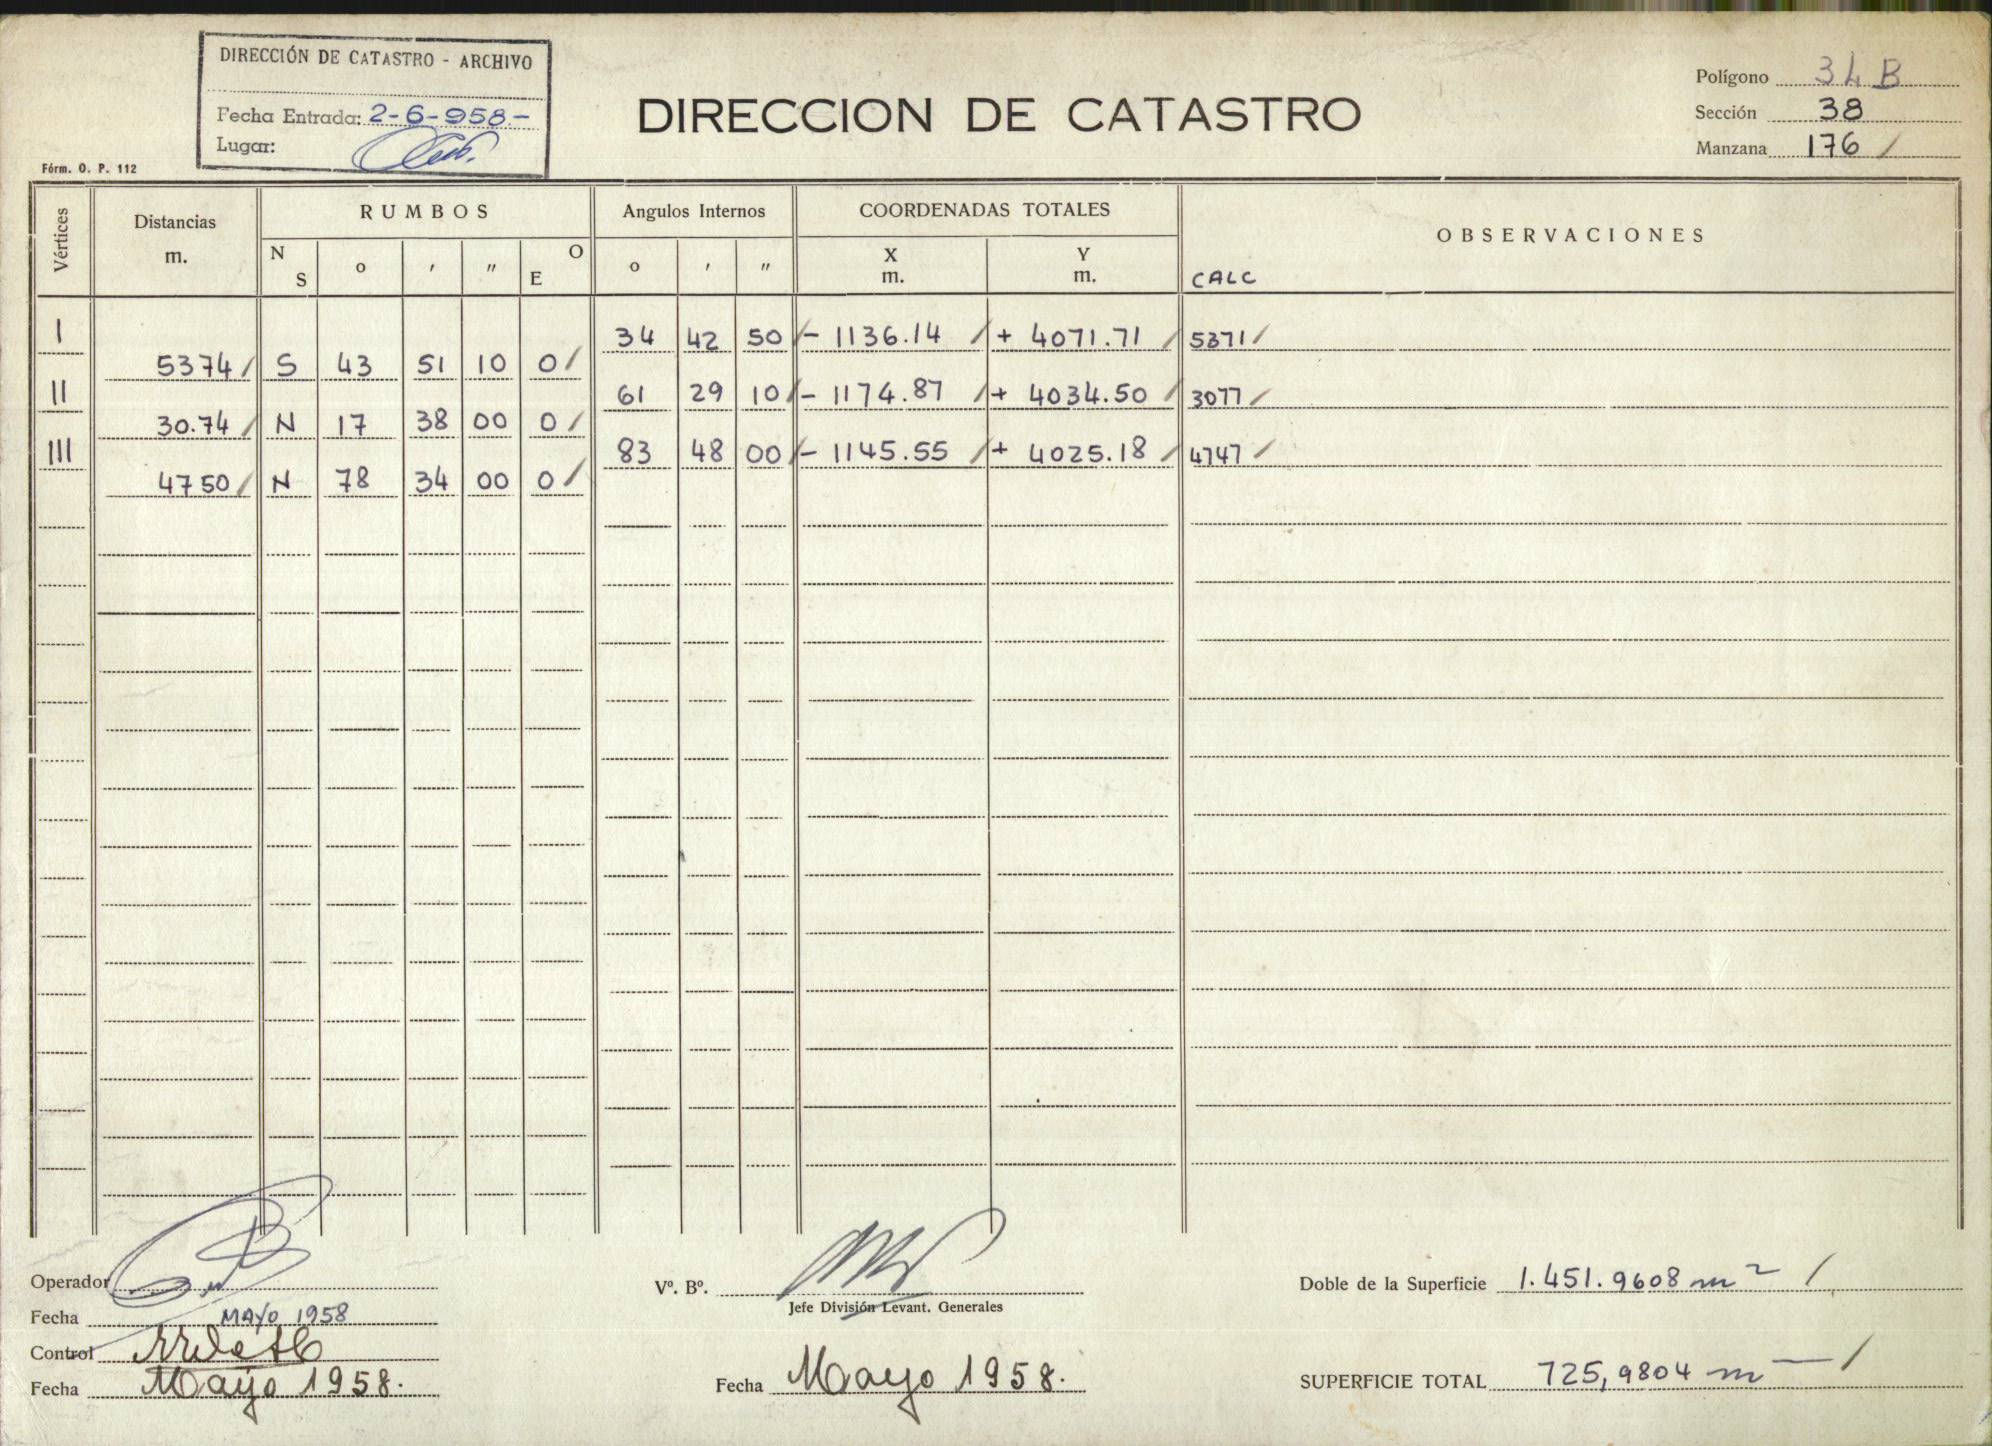 DIRECCIÓN DE CATASTRO - ARCHIVO
Fecha Entrada: 2-6-958.-
Lugar:
Fórm. O. P. 112
DIRECCION DE CATASTRO
Polígono 34 B
Sección 38
Manzana 176 /
Vértices Distancias m. RUMBOS Angulos Internos COORDENADAS TOTALES OBSERVACIONES
N S o ′ ″ O E o ′ ″ X m. Y m. CALC
I 34 42 50 / - 1136.14 / + 4071.71 / 5371 /
5374 / S 43 51 10 O /
II 61 29 10 / - 1174.87 / + 4034.50 / 3077 /
30.74 / N 17 38 00 O /
III 83 48 00 / - 1145.55 / + 4025.18 / 4747 /
4750 / N 78 34 00 O /
Operador
Fecha MAYO 1958
Control
Fecha Mayo 1958.
Vº. Bº.
Jefe División Levant. Generales
Fecha Mayo 1958.
Doble de la Superficie 1.451.9608 m² /
SUPERFICIE TOTAL 725,9804 m² /